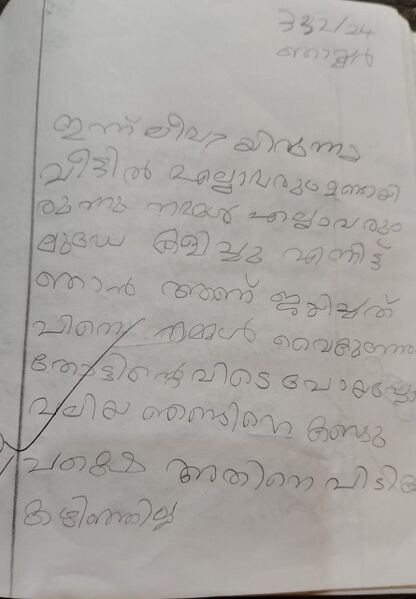 332/24
ഞായർ
ഇന്ന് ലീവായിരുന്നു
വീട്ടിൽ എല്ലാവരുംഉണ്ടായി
രുന്നു നമ്മൾ എല്ലാവരും
ലുഡോ കളിച്ചു എന്നിട്ട്
ഞാൻ ആണ് ജയിച്ചത്
പിന്നെ നമ്മൾ വൈകുന്നേ
തോട്ടിന്റെവിടെ പോയപ്പോ
വലിയ ഞണ്ടിനെ കണ്ടു
പക്ഷെ അതിനെ പിടിക്ക
കഴിഞ്ഞില്ല